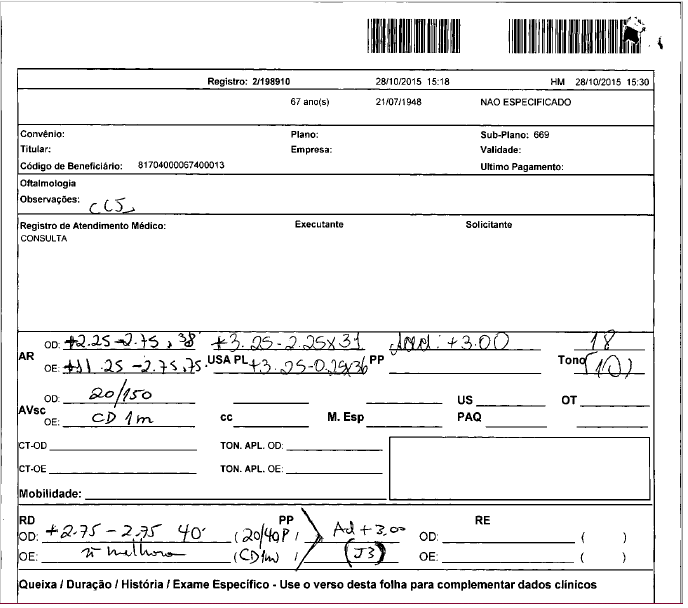 Registro: 2/198910 28/10/2015 15:18 HM 28/10/2015 15:30
67 ano(s) 21/07/1948 NAO ESPECIFICADO
Convênio: Plano: Sub-Plano: 669
Titular: Empresa: Validade:
Código de Beneficiário: 81704000067400013 Ultimo Pagamento:
Oftalmologia
Observações:
Registro de Atendimento Médico: Executante Solicitante
CONSULTA
AR OD: +2.25 -2.75, 38° +3.25-2.25x31 Add: +3.00 18
OE: +11.25 -2.75, 75° USA PL +3.25-0.25x36 PP Tono (10)
AVsc OD: 20/150 US OT
OE: CD 1m cc M. Esp PAQ
CT-OD TON. APL. OD:
CT-OE TON. APL. OE:
Mobilidade:
RD PP RE
OD: +2.75 -2.75 40° (20/40P / Ad +3.00 OD: ( )
OE: ñ melhora (CD1m) (J3) OE: ( )
Queixa / Duração / História / Exame Específico - Use o verso desta folha para complementar dados clínicos